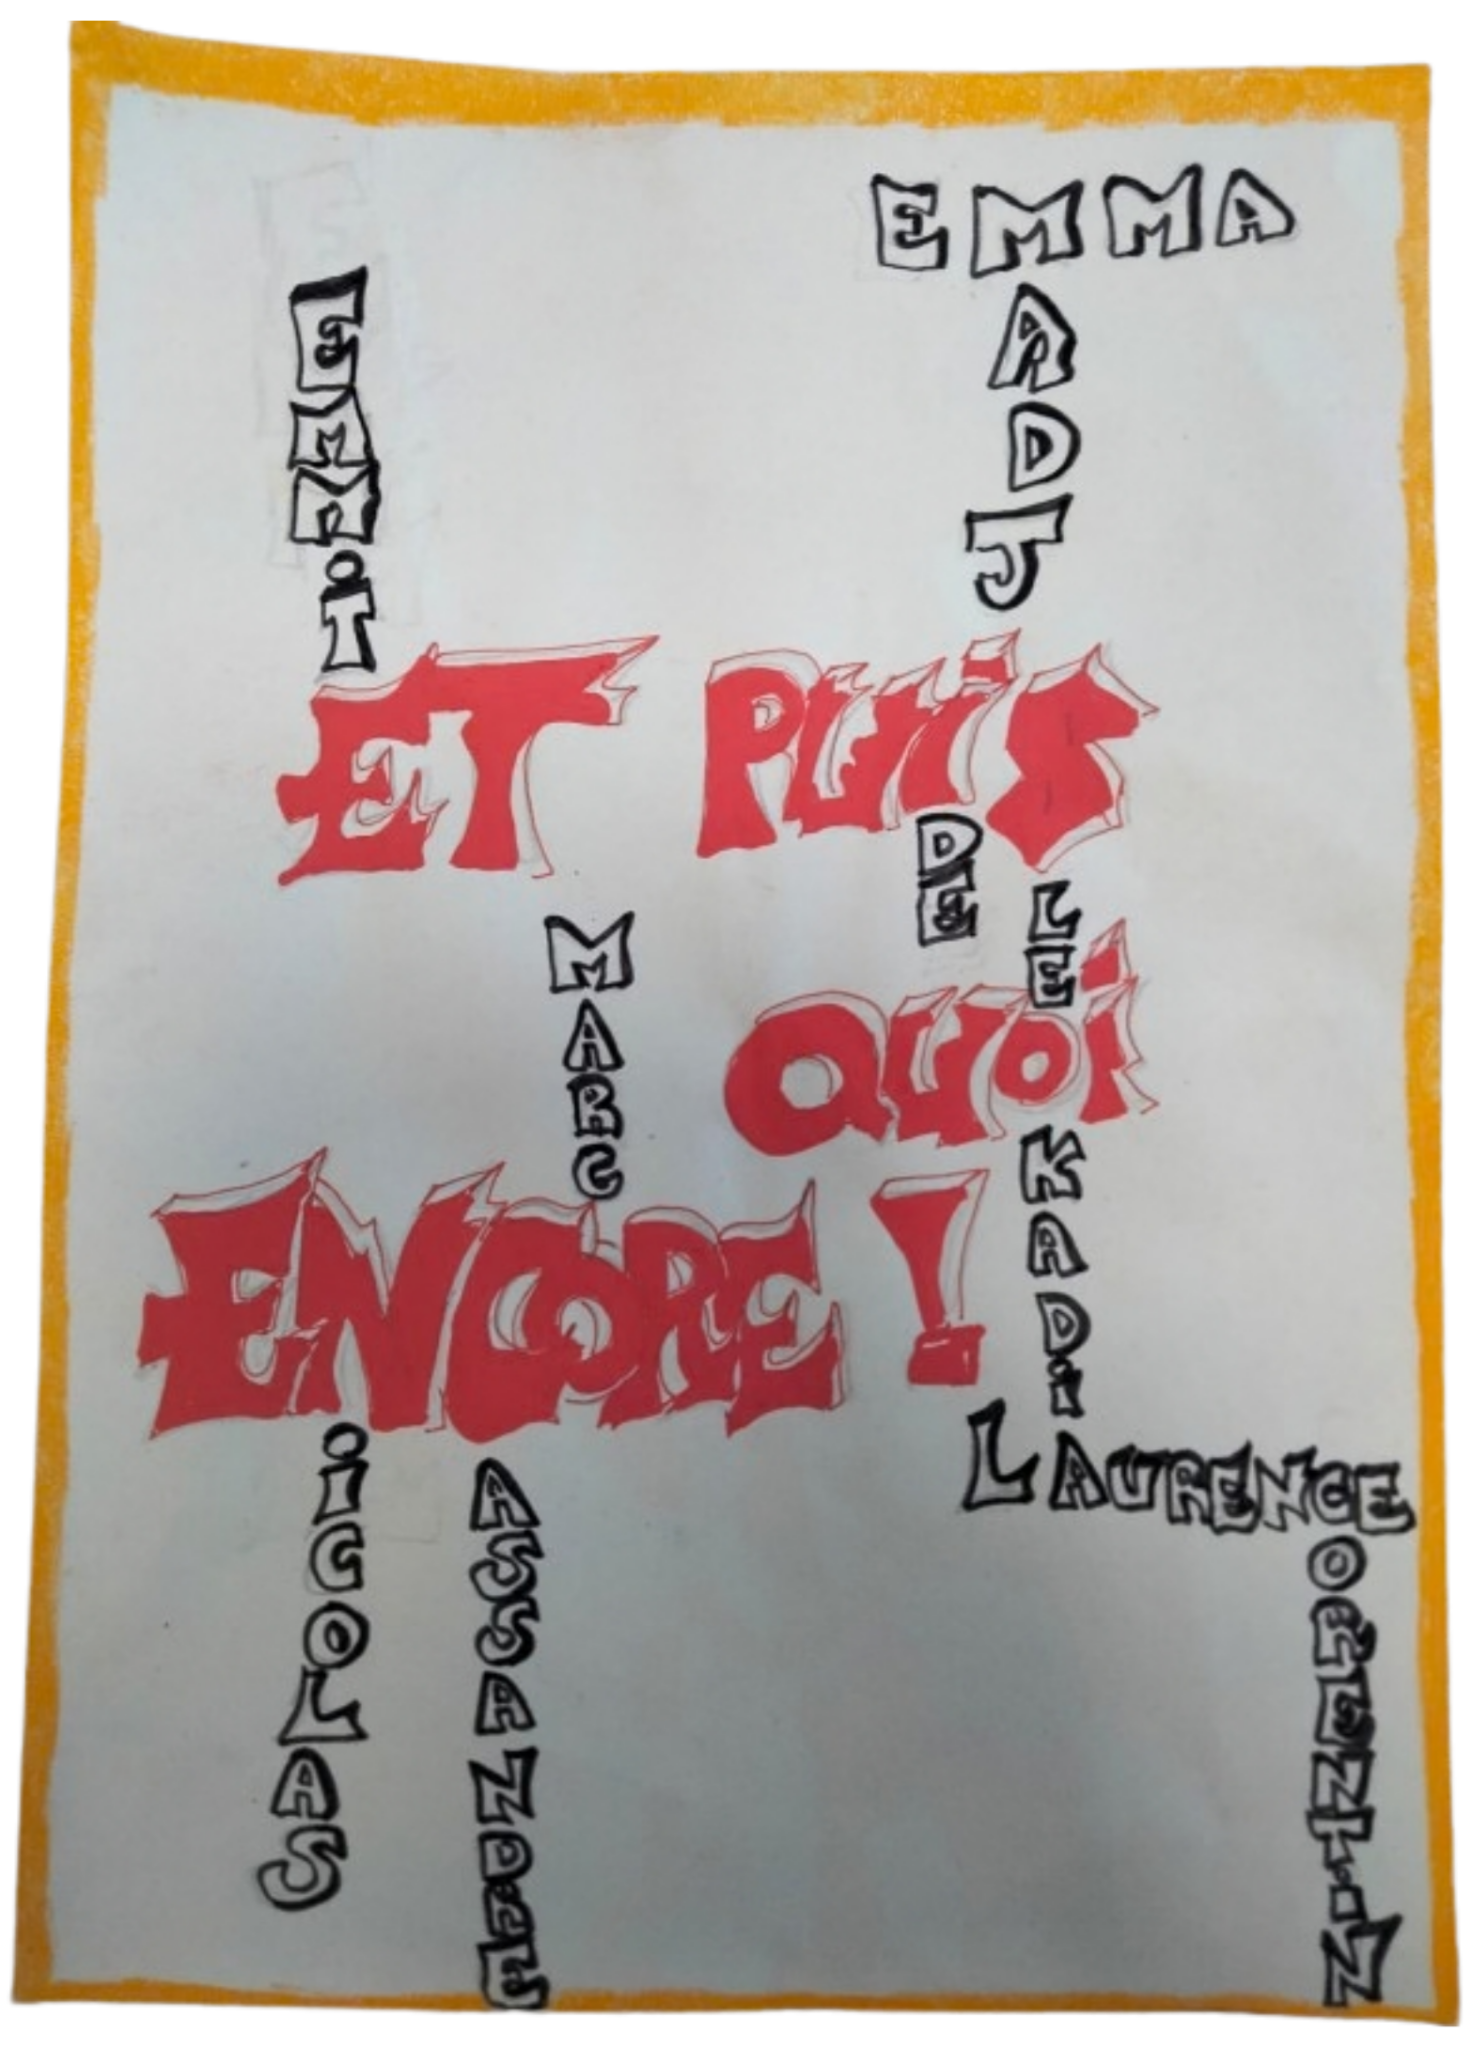 EMMA
EMMiT
ADJ
ET PUiS
DE
LE
MARC
QUOi
KADi
ENCORE !
LAURENCE
iCOLAS
ASSANDRE
ORENTiN